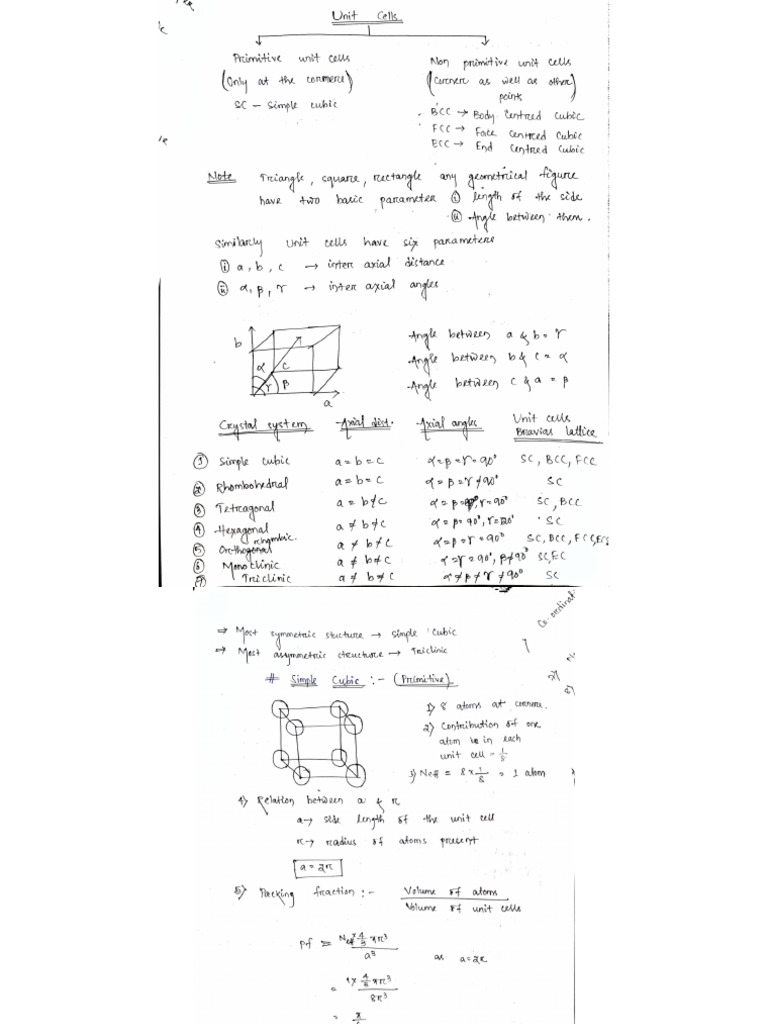 Unit Cells
Primitive unit cells
(Only at the corners)
SC - Simple cubic
Non primitive unit cells
(Corners as well as other points)
BCC → Body Centred Cubic
FCC → Face Centred Cubic
ECC → End Centred Cubic
Note Triangle, square, rectangle any geometrical figure
have two basic parameter (i) length of the side
(ii) Angle between them.
Similarly unit cells have six parameters
(i) a, b, c → inter axial distance
(ii) α, β, γ → inter axial angles
b
α
c
γ
β
a
Angle between a & b = γ
Angle between b & c = α
Angle between c & a = β
Crystal system Axial dist. Axial angles Unit cells Bravias lattice
(1) Simple cubic a = b = c α = β = γ = 90° SC, BCC, FCC
(2) Rhombohedral a = b = c α = β = γ ≠ 90° SC
(3) Tetragonal a = b ≠ c α = β = γ = 90° SC, BCC
(4) Hexagonal a ≠ b ≠ c α = β = 90°, γ = 120° SC
(5) Orthogonal rhombic. a ≠ b ≠ c α = β = γ = 90° SC, BCC, FCC, ECC
(6) Monoclinic a ≠ b ≠ c α = γ = 90°, β ≠ 90° SC, EC
(7) Triclinic a ≠ b ≠ c α ≠ β ≠ γ ≠ 90° SC
⇒ Most symmetric stucture → Simple Cubic
⇒ Most asymmetric structure → Triclinic
Co-ordinat
# Simple Cubic :- (Primitive)
1) 8 atoms at corners.
2) Contribution of one
atom in each
unit cell = 1/8
3) Neff = 8 × 1/8 = 1 atom
4) Relation between a & r
a → side length of the unit cell
r → radius of atoms present
a = 2r
5) Packing fraction :- Volume of atoms / Volume of unit cells
Pf = Neff × 4/3 πr³ / a³ as a = 2r
= 1 × 4/3 πr³ / 8r³
= π